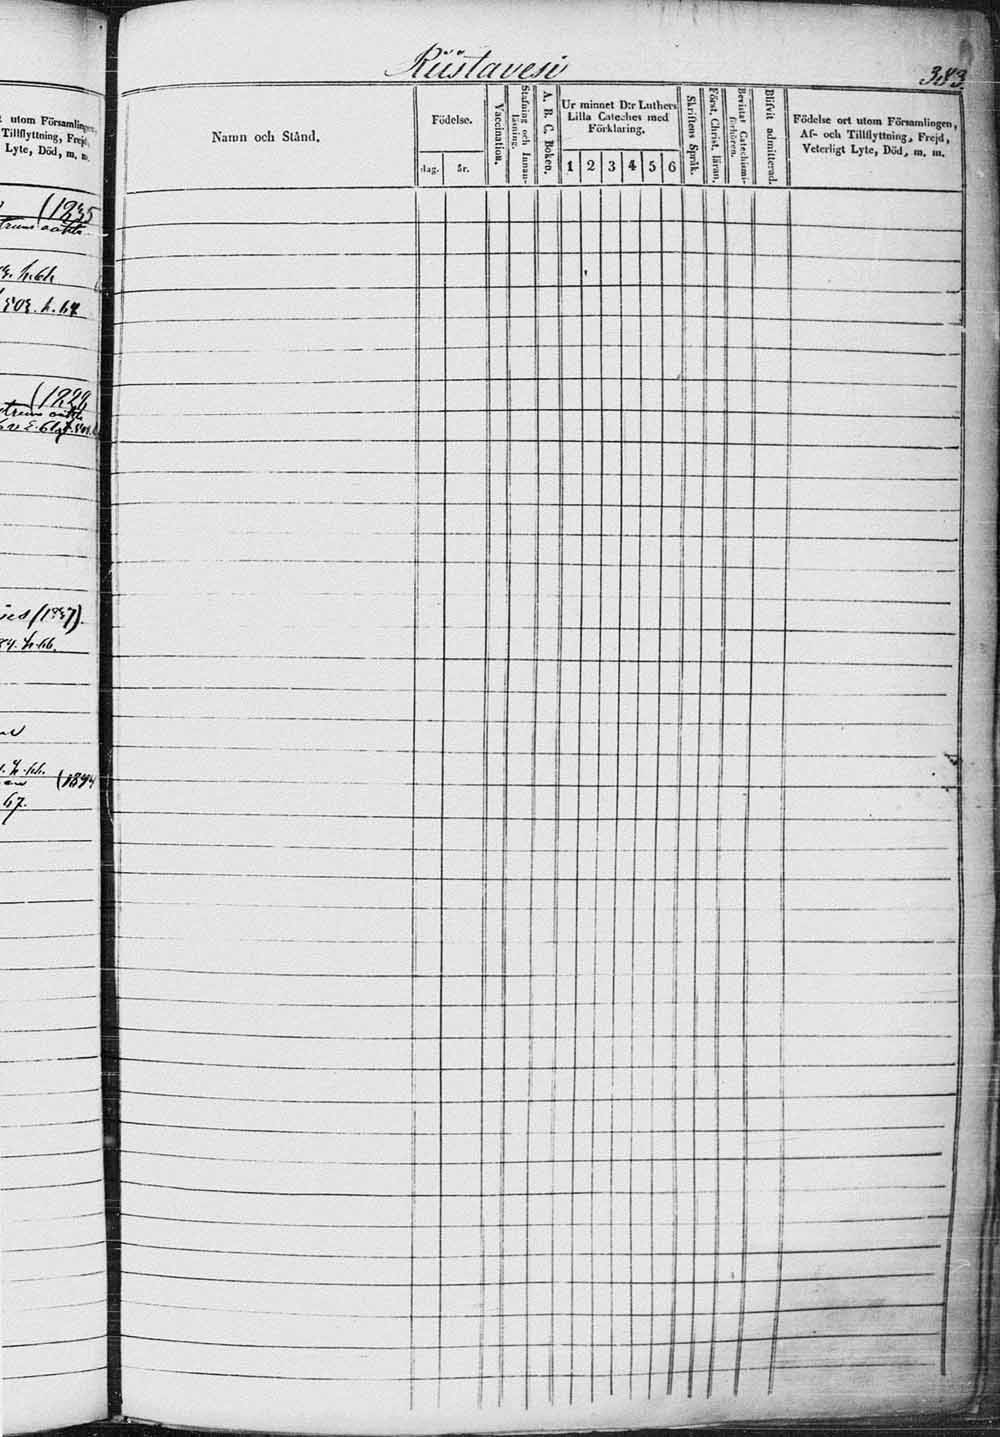 Riistavesi
383.
t utom Församlingen,
Tillflyttning, Frejd,
Lyte, Död, m. m.
Namn och Stånd.
Födelse.
dag.
år.
Vaccination.
Stafning och Innan-
läsning.
A. B. C. Boken.
Ur minnet D:r Luthers
Lilla Cateches med
Förklaring.
1 2 3 4 5 6
Skriftens Språk.
Först. Christ. läran.
Bevistat Catechismi-
förhören.
Blifvit admitterad.
Födelse ort utom Församlingen,
Af- och Tillflyttning, Frejd,
Veterligt Lyte, Död, m. m.
(1835
h. 67
(1824
(1837).
h. 66.
h. 66.
(1844
67.